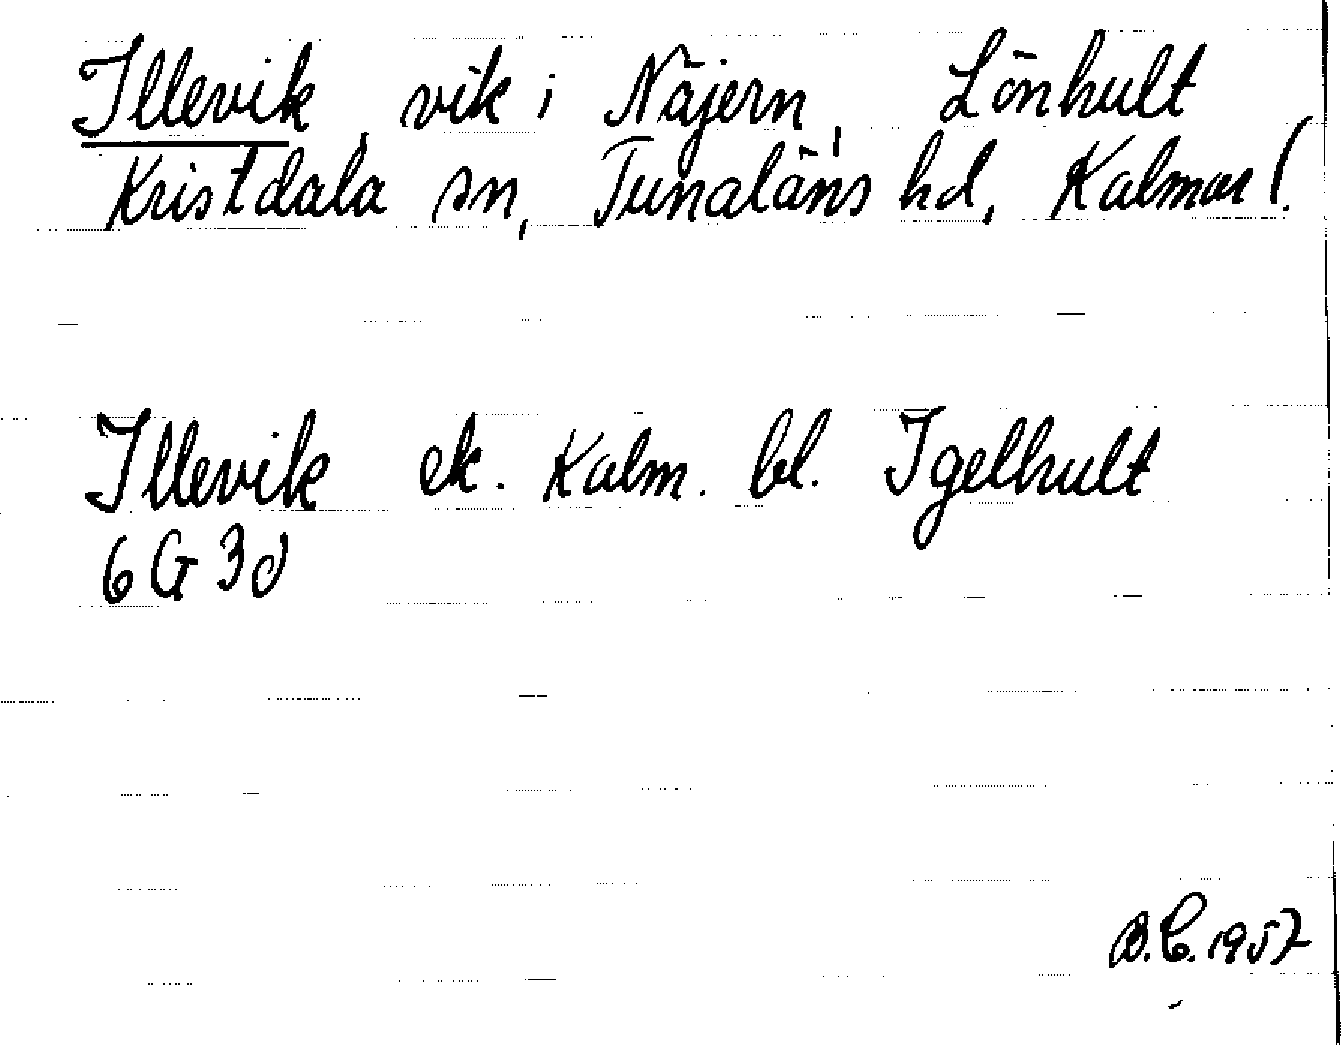 Illevik, vik i Näjern, Lönhult
Kristdala sn, Tunaläns hd, Kalmar l.
Illevik ek. Kalm. bl. Igelhult
6G3d
B.C. 1957